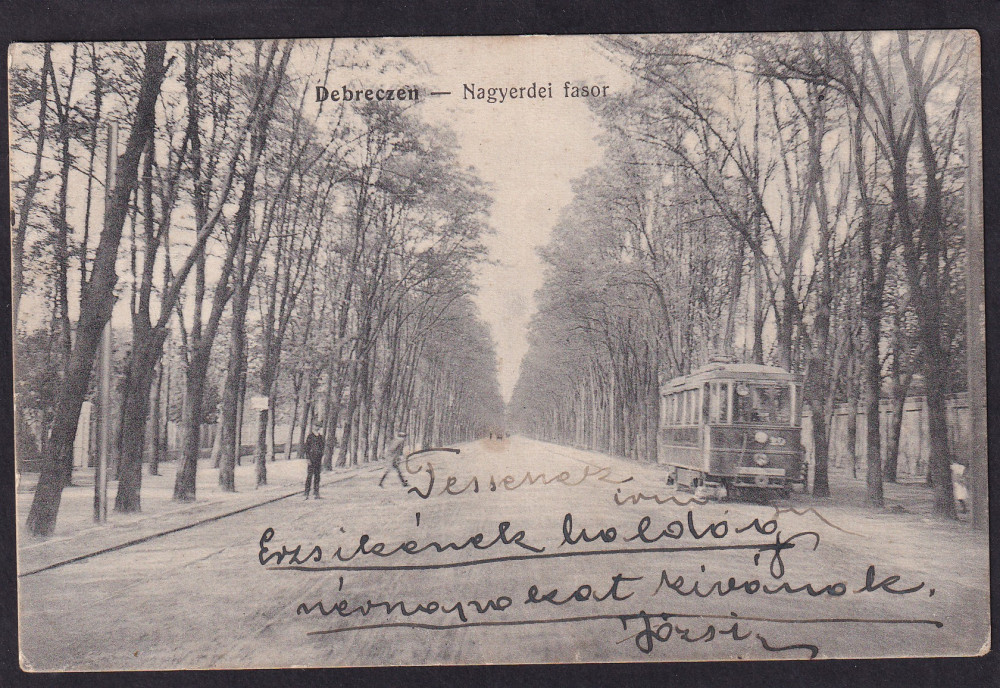 Debreczen — Nagyerdei fasor
Tessenek
irni
Erzsikének boldog
névnapokat kivánok.
Józsi